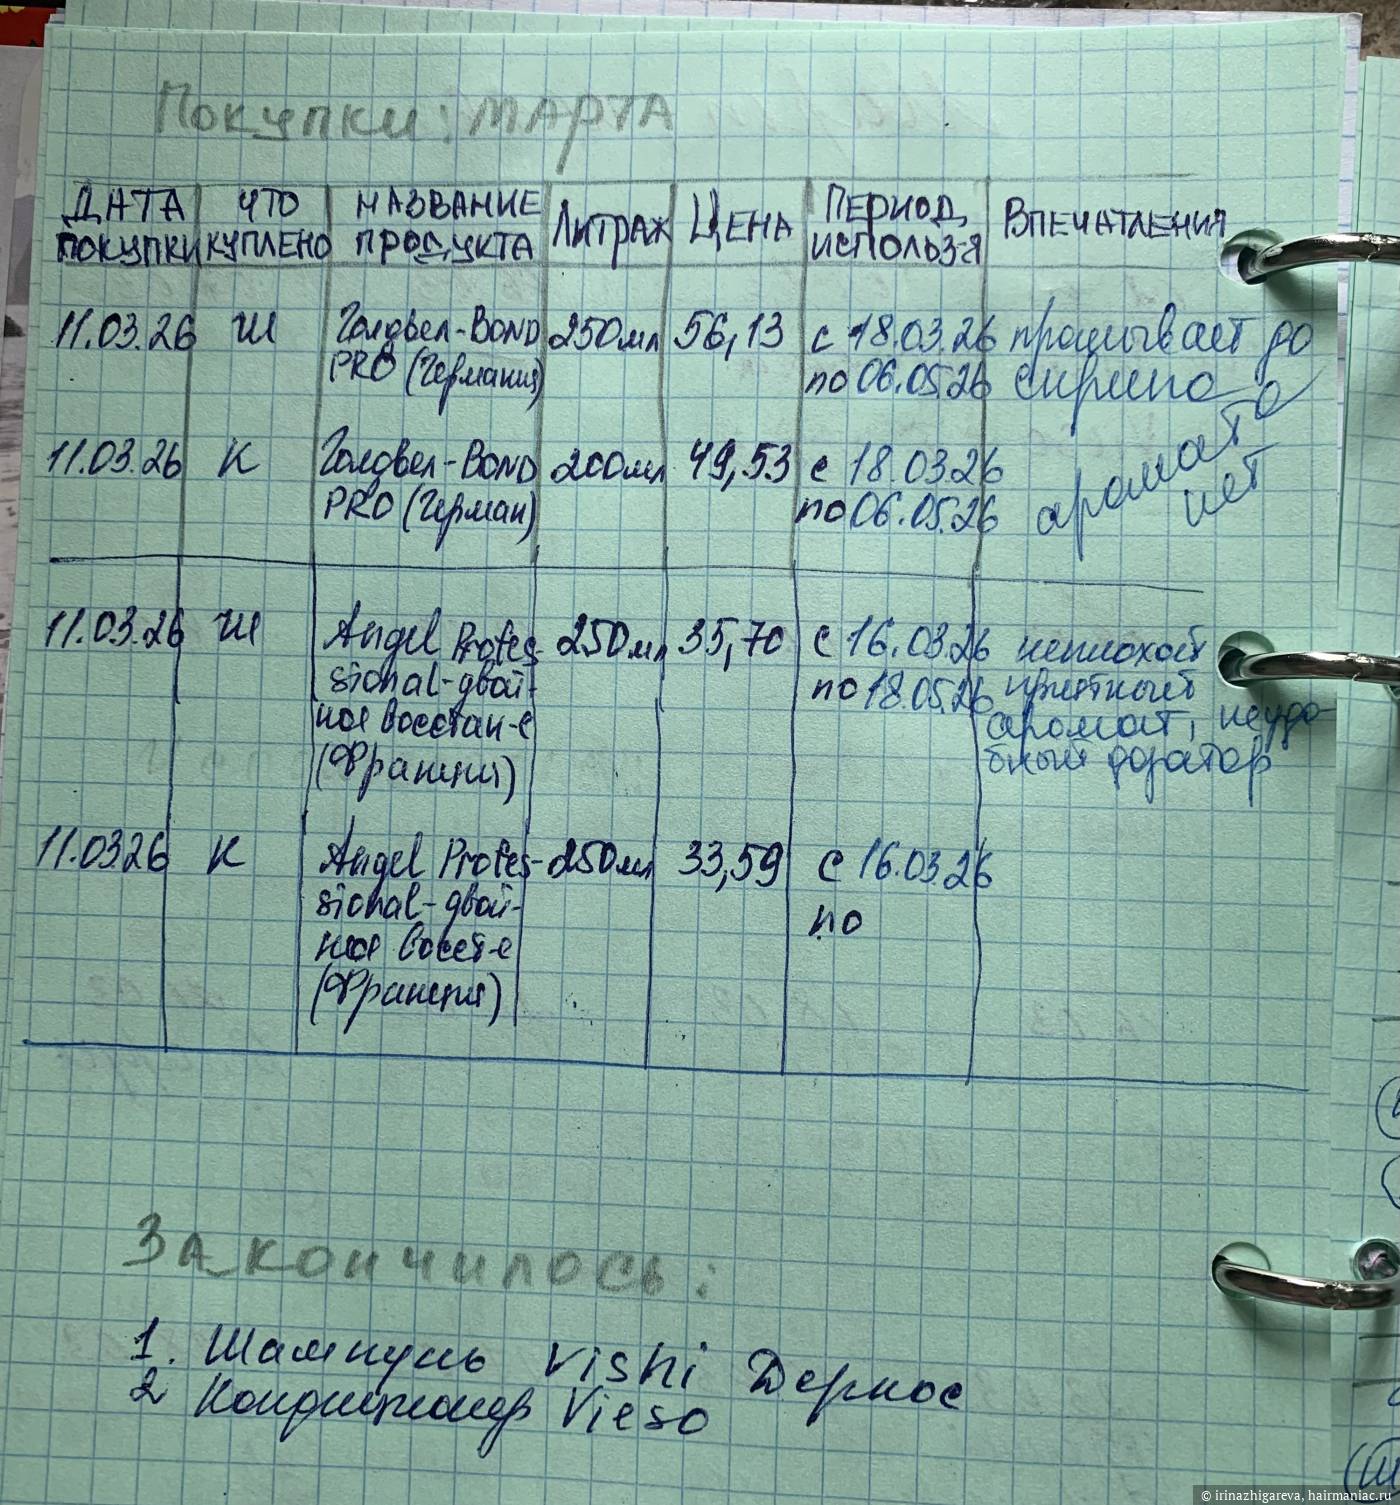 Покупки: МАРТА
ДАТА ПОКУПКИ
ЧТО КУПЛЕНО
НАЗВАНИЕ ПРОДУКТА
ЛИТРАЖ
ЦЕНА
ПЕРИОД ИСПОЛЬЗ-Я
ВПЕЧАТЛЕНИЯ
11.03.26 Ш Голдвел-BOND 250мл 56,13 с 18.03.26 промывает до
PRO (Германия) по 06.05.26 скрипа
аромата
нет
11.03.26 К Голдвел-BOND 200мл 49,53 с 18.03.26
PRO (Герман) по 06.05.26
11.03.26 Ш Angel Profes- 250мл 35,70 с 16.03.26 неплохой
sional-двой- по 18.05.26 приятный
ное восстан-е аромат, неудо-
(Франция) бный дозатор
11.0326 К Angel Profes- 250мл 33,59 с 16.03.26
sional-двой- по
ное восст-е
(Франция)
Закончилось:
1. Шампунь Vishi Деркос
2 Кондиционер Vieso
© irinazhigareva, hairmaniac.ru